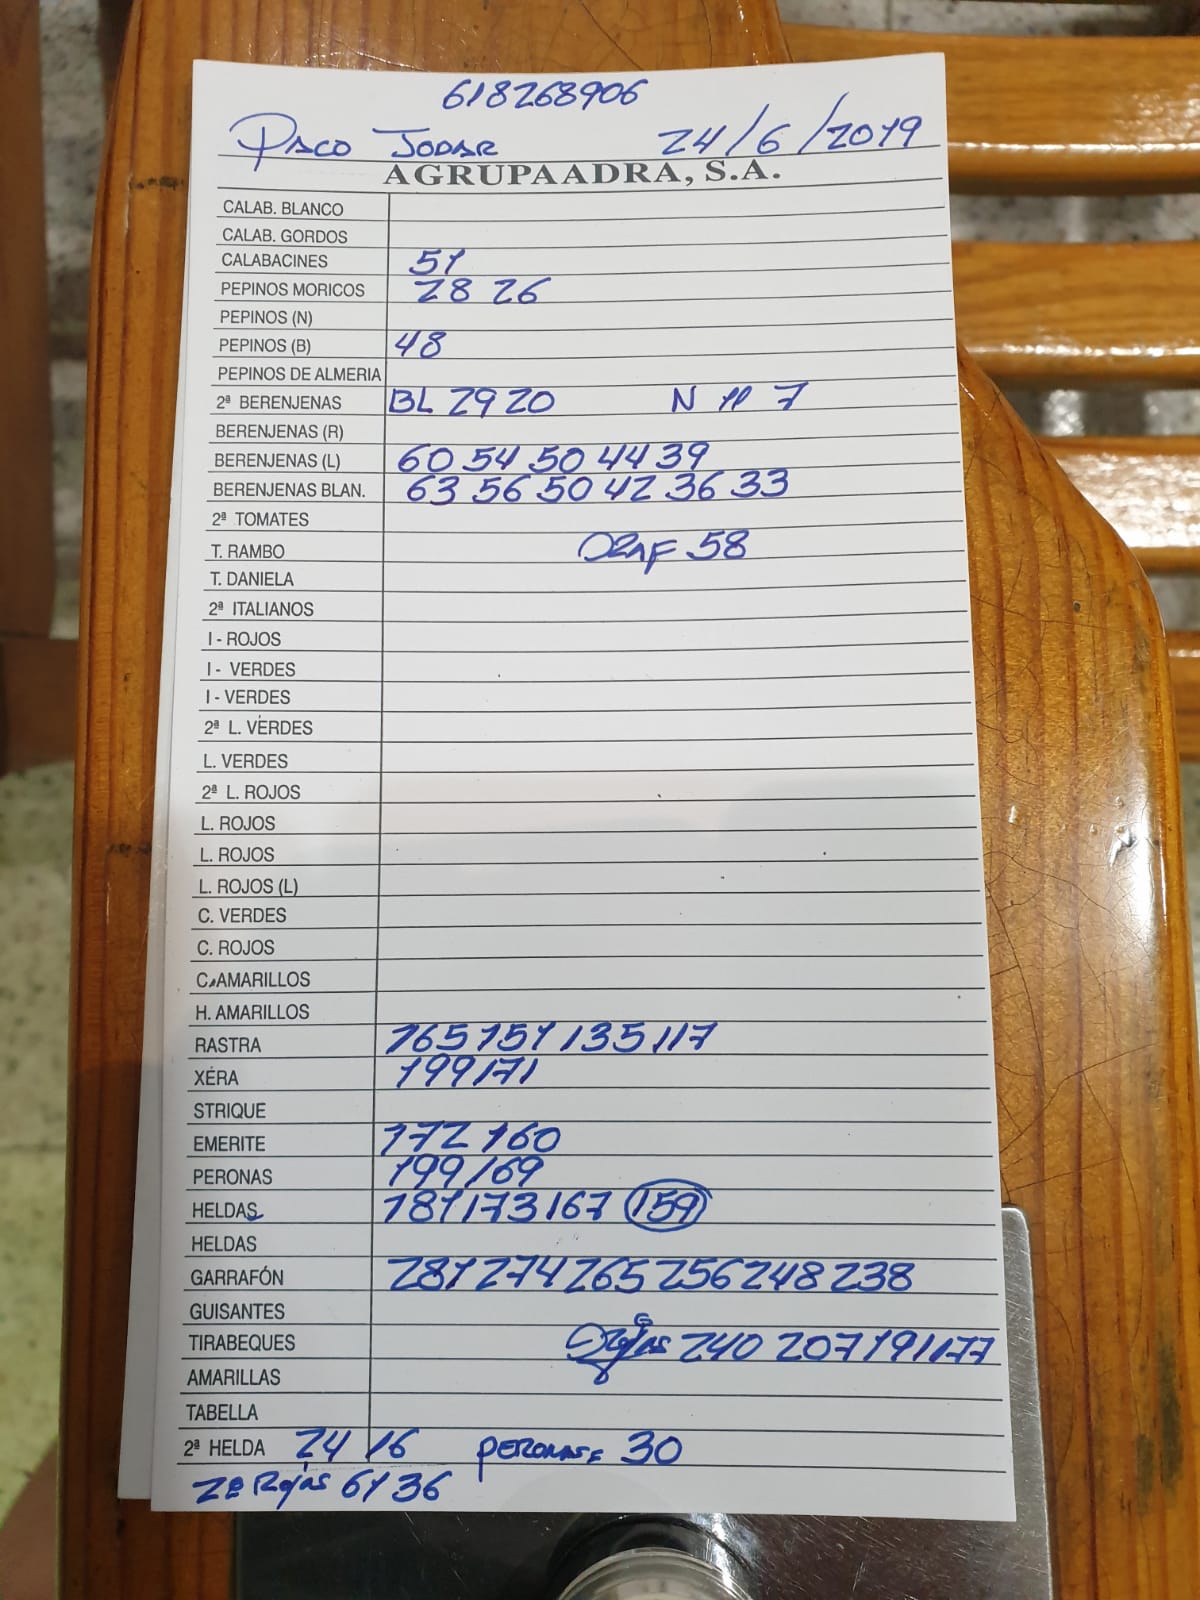 618268906
PACO JODAR 24/6/2019
AGRUPAADRA, S.A.
CALAB. BLANCO
CALAB. GORDOS
CALABACINES 51
PEPINOS MORICOS 28 26
PEPINOS (N)
PEPINOS (B) 48
PEPINOS DE ALMERIA
2ª BERENJENAS BL 29 20 N 11 7
BERENJENAS (R)
BERENJENAS (L) 60 54 50 44 39
BERENJENAS BLAN. 63 56 50 42 36 33
2ª TOMATES
T. RAMBO 58
T. DANIELA
2ª ITALIANOS
I - ROJOS
I - VERDES
I - VERDES
2ª L. VERDES
L. VERDES
2ª L. ROJOS
L. ROJOS
L. ROJOS
L. ROJOS (L)
C. VERDES
C. ROJOS
C. AMARILLOS
H. AMARILLOS
RASTRA 165 151 135 117
XÉRA 199 171
STRIQUE
EMERITE 172 160
PERONAS 199 169
HELDAS 181 173 167 159
HELDAS
GARRAFÓN 281 274 265 256 248 238
GUISANTES
TIRABEQUES 240 207 191 177
AMARILLAS
TABELLA
2ª HELDA 24 16 30
2ª Rojas 61 36